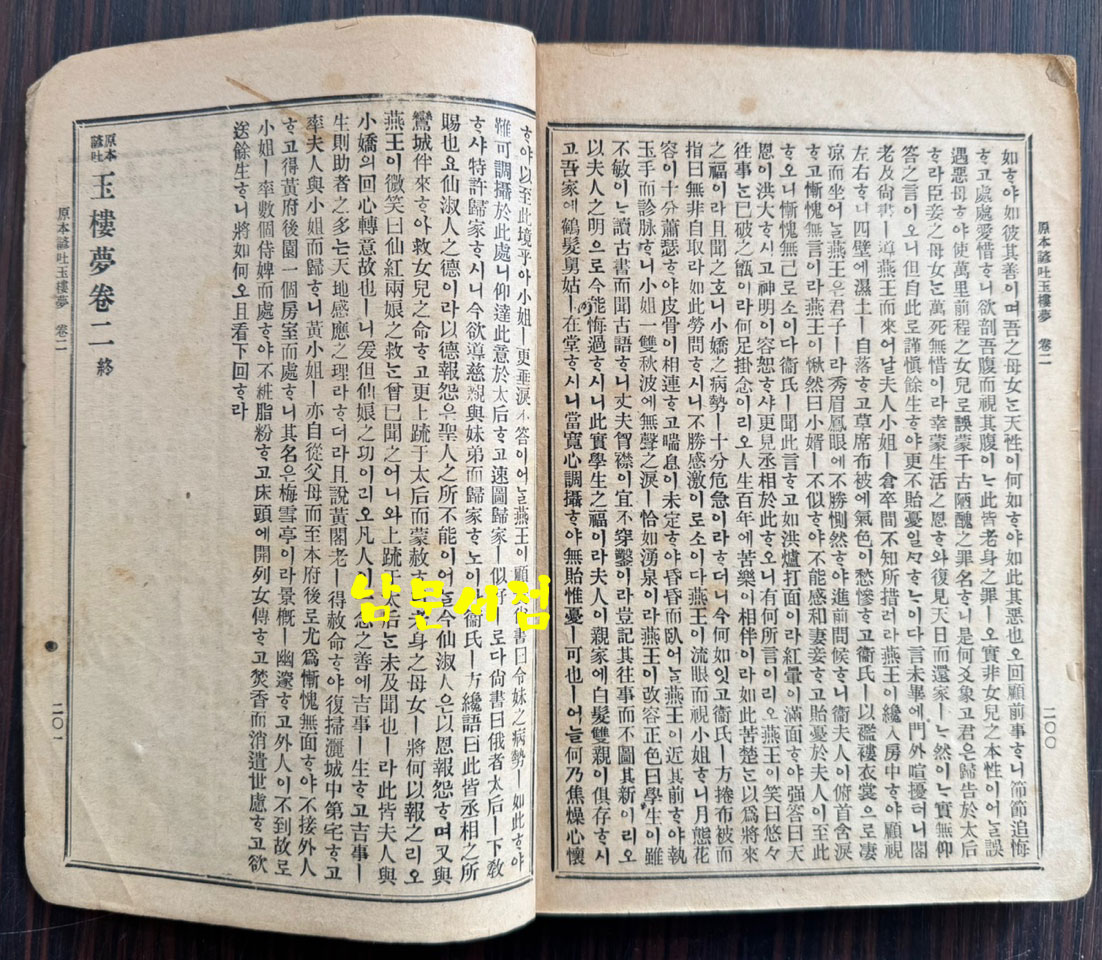 原本諺吐玉樓夢 卷二
二〇〇
如ᄒᆞ야如彼其善이며吾之母女ᄂᆞᆫ天性이何如ᄒᆞ야如此其惡也오回顧前事ᄒᆞ니節節追悔
ᄒᆞ고處處愛惜ᄒᆞ니欲剖吾腹而視其腹이ᄂᆞᆫ此皆老身之罪ㅣ오實非女兒之本性이어ᄂᆞᆯ誤
遇惡母ᄒᆞ야使萬里前程之女兒로誤蒙千古陋醜之罪名ᄒᆞ니是何爻象고君은歸告於太后
ᄒᆞ라臣妾之母女ᄂᆞᆫ萬死無惜이라幸蒙生活之恩ᄒᆞ와復見天日而還家ㅣᄂᆞ然이ᄂᆞ實無仰
答之言이오니但自此로謹愼餘生ᄒᆞ야更不貽憂일ᄭᆞᄒᆞᄂᆞ이다言未畢에門外喧擾터니閣
老及尙書ㅣ道燕王而來어ᄂᆞᆯ夫人小姐ㅣ倉卒間不知所措러라燕王이纔入房中ᄒᆞ야顧視
左右ᄒᆞ니四壁에濕土ㅣ自落ᄒᆞ고草席布被에氣色이愁慘ᄒᆞ고衛氏ㅣ以襤褸衣裳으로凄
凉而坐어ᄂᆞᆯ燕王은君子ㅣ라秀眉鳳眼에不勝惻然ᄒᆞ야進前問候ᄒᆞ니衛夫人이俯首含淚
ᄒᆞ고慚愧無言이라燕王이愀然曰小婿ㅣ不似ᄒᆞ야不能感和妻妾ᄒᆞ고貽憂於夫人이至此
ᄒᆞ오니慚愧無已로소이다衛氏ㅣ聞此言ᄒᆞ고如洪爐打面이라紅暈이滿面ᄒᆞ야强答曰天
恩이洪大ᄒᆞ시고神明이容恕ᄒᆞ샤更見丞相於此ᄒᆞ오니有何所言이리오燕王이笑曰悠々
往事ᄂᆞᆫ已破之甑이라何足掛念이리오人生百年에苦樂이相伴이라如此苦楚ᄂᆞᆫ以爲將來
之福이라且聞之호니小嬌之病勢ㅣ十分危急이라ᄒᆞ더니今何如잇고衛氏ㅣ方捲布被而
指曰無非自取라如此勞問ᄒᆞ시니不勝感激이로소이다燕王이流眼而視小姐ᄒᆞ니月態花
容이十分蕭瑟ᄒᆞ야皮骨이相連ᄒᆞ고喘息이未定ᄒᆞ야昏昏而臥어ᄂᆞᆯ燕王이近其前ᄒᆞ야執
玉手而診脉ᄒᆞ니小姐一雙秋波에無聲之淚ㅣ恰如湧泉이라燕王이改容正色曰學生이雖
不敏이ᄂᆞ讀古書而聞古語ᄒᆞ니丈夫智襟이宜不穿鑿이라豈記其往事而不圖其新이리오
以夫人之明으로今能悔過ᄒᆞ시니此實學生之福이라夫人이親家에白髮雙親이俱存ᄒᆞ시
고吾家에鶴髮舅姑ㅣ在堂ᄒᆞ시니當寬心調攝ᄒᆞ야無貽惟憂ㅣ可也ㅣ어ᄂᆞᆯ何乃焦燥心懷
ᄒᆞ야以至此境乎아小姐ㅣ更垂淚不答이어ᄂᆞᆯ燕王이顧尙書曰令妹之病勢ㅣ如此ᄒᆞ야
難可調攝於此處니仰達此意於太后ᄒᆞ고速圖歸家ㅣ似好로다尙書曰俄者太后ㅣ下敎
ᄒᆞ샤特許歸家ᄒᆞ시니今欲導慈親與妹弟而歸家ᄒᆞ노이다衛氏ㅣ方纔語曰此皆丞相之所
賜也요仙淑人之德이라以德報怨은聖人之所不能이어ᄂᆞᆯ今仙淑人은以恩報怨ᄒᆞ며又與
鸞城伴來ᄒᆞ아救女兒之命ᄒᆞ고更上疏于太后而蒙赦ᄒᆞ니老身之母女ㅣ將何以報之리오
燕王이微笑曰仙紅兩娘之救ᄂᆞᆫ曾已聞之어니와上疏于太后ᄂᆞᆫ未及聞也ㅣ라此皆夫人與
小嬌의回心轉意故也ㅣ니爰但仙娘之功이리오凡人이念之善에吉事ㅣ生ᄒᆞ고吉事ㅣ
生則助者之多ᄂᆞᆫ天地感應之理라ᄒᆞ더라且說黃閣老ㅣ得赦命ᄒᆞ야復掃灑城中第宅ᄒᆞ고
率夫人與小姐而歸ᄒᆞ니黃小姐ㅣ亦自從父母而至本府後로尤爲慚愧無面ᄒᆞ야不接外人
ᄒᆞ고得黃府後園一個房室而處ᄒᆞ니其名은梅雪亭이라景槪ㅣ幽邃ᄒᆞ고外人이不到故로
小姐ㅣ率數個侍婢而處ᄒᆞ야不粧脂粉ᄒᆞ고床頭에開列女傳ᄒᆞ고焚香而消遣世慮ᄒᆞ고欲
送餘生ᄒᆞ니將如何오且看下回ᄒᆞ라
原本諺吐玉樓夢卷二 終
原本諺吐玉樓夢 卷二
二〇一
남문서점